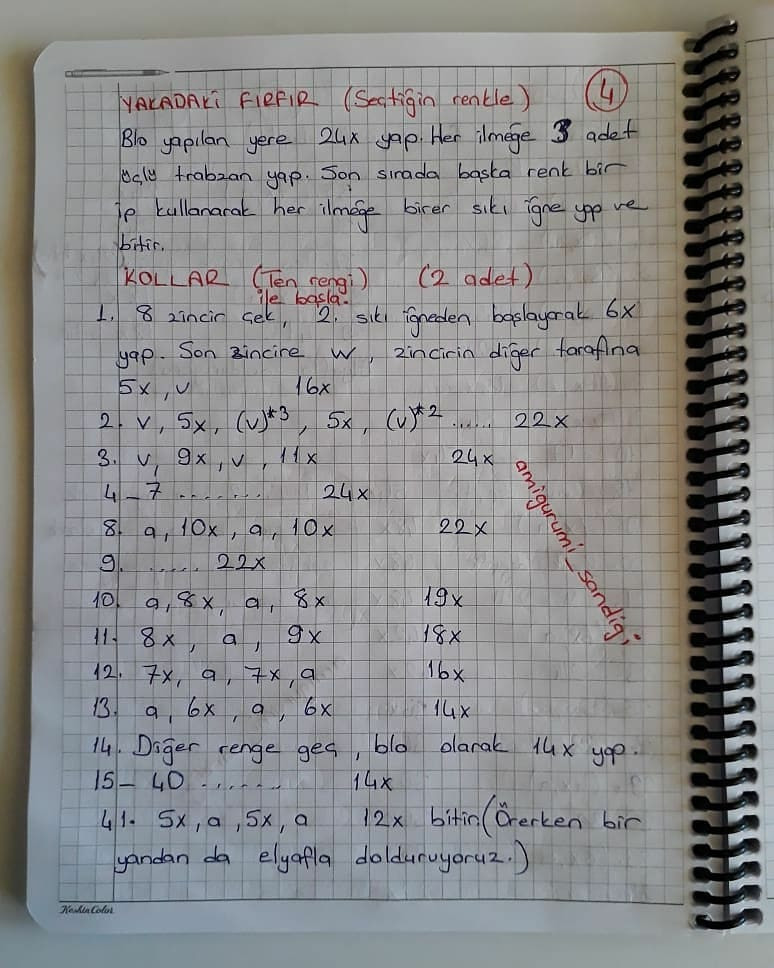 YAKADAKİ FIRFIR (Seçtiğin renkle) 4
Blo yapılan yere 24x yap. Her ilmeğe 3 adet
üçlü trabzan yap. Son sırada başka renk bir
ip kullanarak her ilmeğe birer sıkı iğne yap ve
bitir.
KOLLAR (Ten rengi) (2 adet)
ile başla.
1. 8 zincir çek, 2. sıkı iğneden başlayarak 6x
yap. Son zincire W, zincirin diğer tarafına
5x, v 16x
2. v, 5x, (v)*3, 5x, (v)*2 ..... 22x
3. v, 9x, v, 11x 24x
4-7 ........ 24x
8. a, 10x, a, 10x 22x
9. ..... 22x
10. a, 8x, a, 8x 19x
11. 8x, a, 9x 18x
12. 7x, a, 7x, a 16x
13. a, 6x, a, 6x 14x
14. Diğer renge geç, blo olarak 14x yap.
15- 40 ....... 14x
41. 5x, a, 5x, a 12x bitir (Örerken bir
yandan da elyafla dolduruyoruz.)
amigurumi_sandigi
KeskinColor